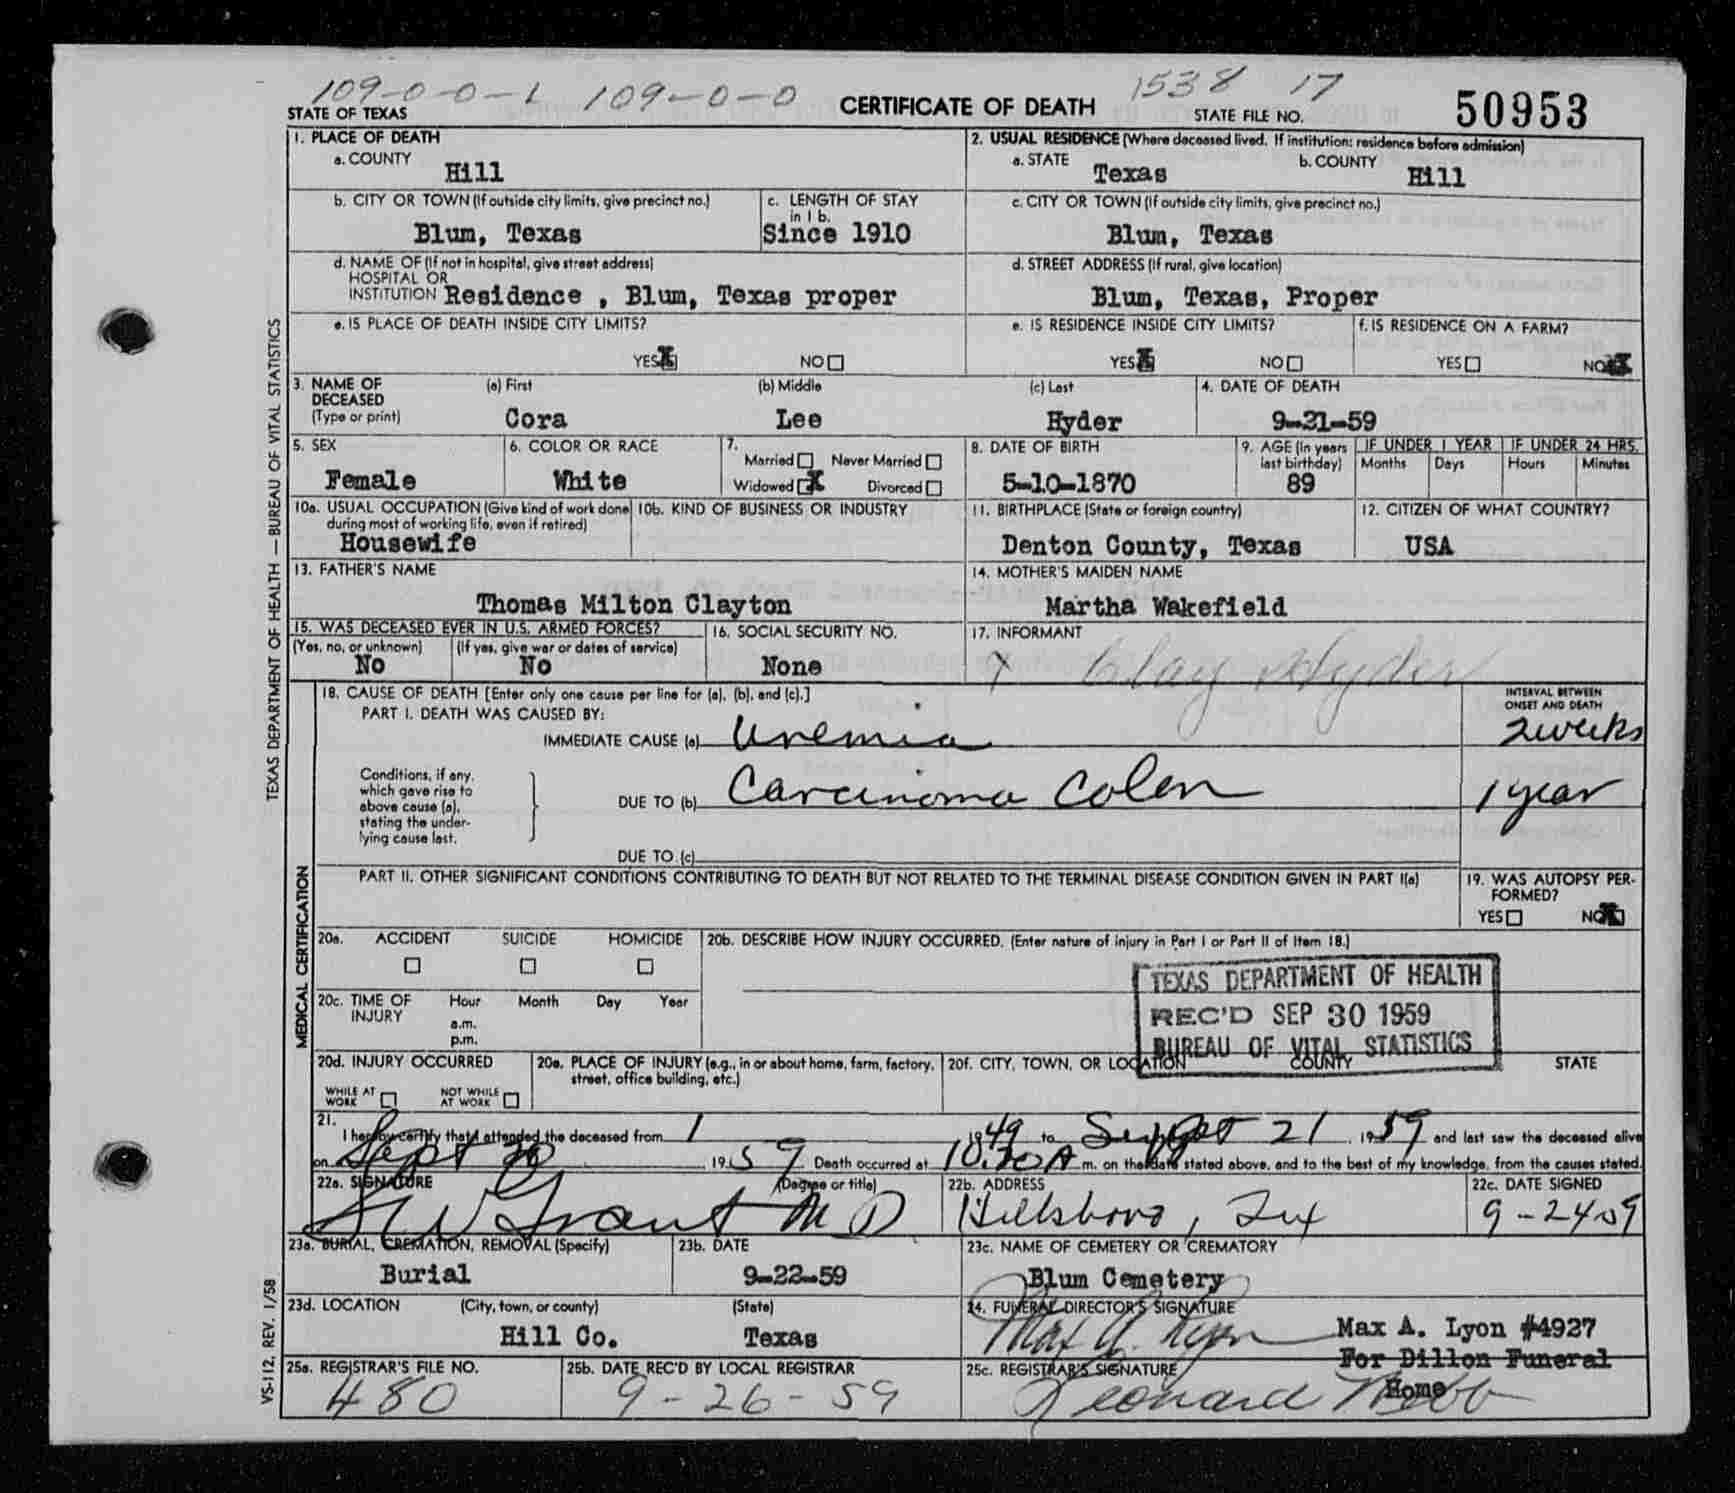 109-0-0-1 109-0-0 1538 17
STATE OF TEXAS CERTIFICATE OF DEATH STATE FILE NO. 50953
1. PLACE OF DEATH
a. COUNTY
Hill
2. USUAL RESIDENCE (Where deceased lived. If institution: residence before admission)
a. STATE b. COUNTY
Texas Hill
b. CITY OR TOWN (If outside city limits, give precinct no.) c. LENGTH OF STAY in 1 b.
Blum, Texas Since 1910
c. CITY OR TOWN (If outside city limits, give precinct no.)
Blum, Texas
d. NAME OF (If not in hospital, give street address)
HOSPITAL OR
INSTITUTION Residence , Blum, Texas proper
d. STREET ADDRESS (If rural, give location)
Blum, Texas, Proper
e. IS PLACE OF DEATH INSIDE CITY LIMITS?
YES X NO
e. IS RESIDENCE INSIDE CITY LIMITS?
YES X NO
f. IS RESIDENCE ON A FARM?
YES NO X
3. NAME OF DECEASED (Type or print) (a) First (b) Middle (c) Last 4. DATE OF DEATH
Cora Lee Hyder 9-21-59
5. SEX
Female
6. COLOR OR RACE
White
7.
Married Never Married
Widowed X Divorced
8. DATE OF BIRTH
5-10-1870
9. AGE (In years last birthday)
89
IF UNDER 1 YEAR IF UNDER 24 HRS.
Months Days Hours Minutes
10a. USUAL OCCUPATION (Give kind of work done during most of working life, even if retired)
Housewife
10b. KIND OF BUSINESS OR INDUSTRY
11. BIRTHPLACE (State or foreign country)
Denton County, Texas
12. CITIZEN OF WHAT COUNTRY?
USA
13. FATHER'S NAME
Thomas Milton Clayton
14. MOTHER'S MAIDEN NAME
Martha Wakefield
15. WAS DECEASED EVER IN U.S. ARMED FORCES?
(Yes, no, or unknown) (If yes, give war or dates of service)
No No
16. SOCIAL SECURITY NO.
None
17. INFORMANT
X Clay Hyder
18. CAUSE OF DEATH [Enter only one cause per line for (a), (b), and (c).]
PART I. DEATH WAS CAUSED BY:
IMMEDIATE CAUSE (a) Uremia
INTERVAL BETWEEN ONSET AND DEATH
2 weeks
Conditions, if any, which gave rise to above cause (a), stating the underlying cause last.
DUE TO (b) Carcinoma Colon 1 year
DUE TO (c)
PART II. OTHER SIGNIFICANT CONDITIONS CONTRIBUTING TO DEATH BUT NOT RELATED TO THE TERMINAL DISEASE CONDITION GIVEN IN PART I(a)
19. WAS AUTOPSY PERFORMED?
YES NO X
20a. ACCIDENT SUICIDE HOMICIDE
20b. DESCRIBE HOW INJURY OCCURRED. (Enter nature of injury in Part I or Part II of Item 18.)
20c. TIME OF INJURY Hour Month Day Year
a.m.
p.m.
TEXAS DEPARTMENT OF HEALTH
REC'D SEP 30 1959
BUREAU OF VITAL STATISTICS
20d. INJURY OCCURRED
WHILE AT WORK NOT WHILE AT WORK
20e. PLACE OF INJURY (e.g., in or about home, farm, factory, street, office building, etc.)
20f. CITY, TOWN, OR LOCATION COUNTY STATE
21.
I hereby certify that I attended the deceased from 1 1949 to Sept 21, 1959 and last saw the deceased alive
on Sept 20 1959 Death occurred at 10:20 A m. on the date stated above, and to the best of my knowledge, from the causes stated.
22a. SIGNATURE (Degree or title)
Grant M D
22b. ADDRESS
Hillsboro, Tex
22c. DATE SIGNED
9-24-59
23a. BURIAL, CREMATION, REMOVAL (Specify)
Burial
23b. DATE
9-22-59
23c. NAME OF CEMETERY OR CREMATORY
Blum Cemetery
23d. LOCATION (City, town, or county) (State)
Hill Co. Texas
24. FUNERAL DIRECTOR'S SIGNATURE
Max A. Lyon Max A. Lyon #4927
For Dillon Funeral
Home
25a. REGISTRAR'S FILE NO.
480
25b. DATE REC'D BY LOCAL REGISTRAR
9-26-59
25c. REGISTRAR'S SIGNATURE
Leonard Webb
TEXAS DEPARTMENT OF HEALTH — BUREAU OF VITAL STATISTICS
MEDICAL CERTIFICATION
VS-112, REV. 1/58